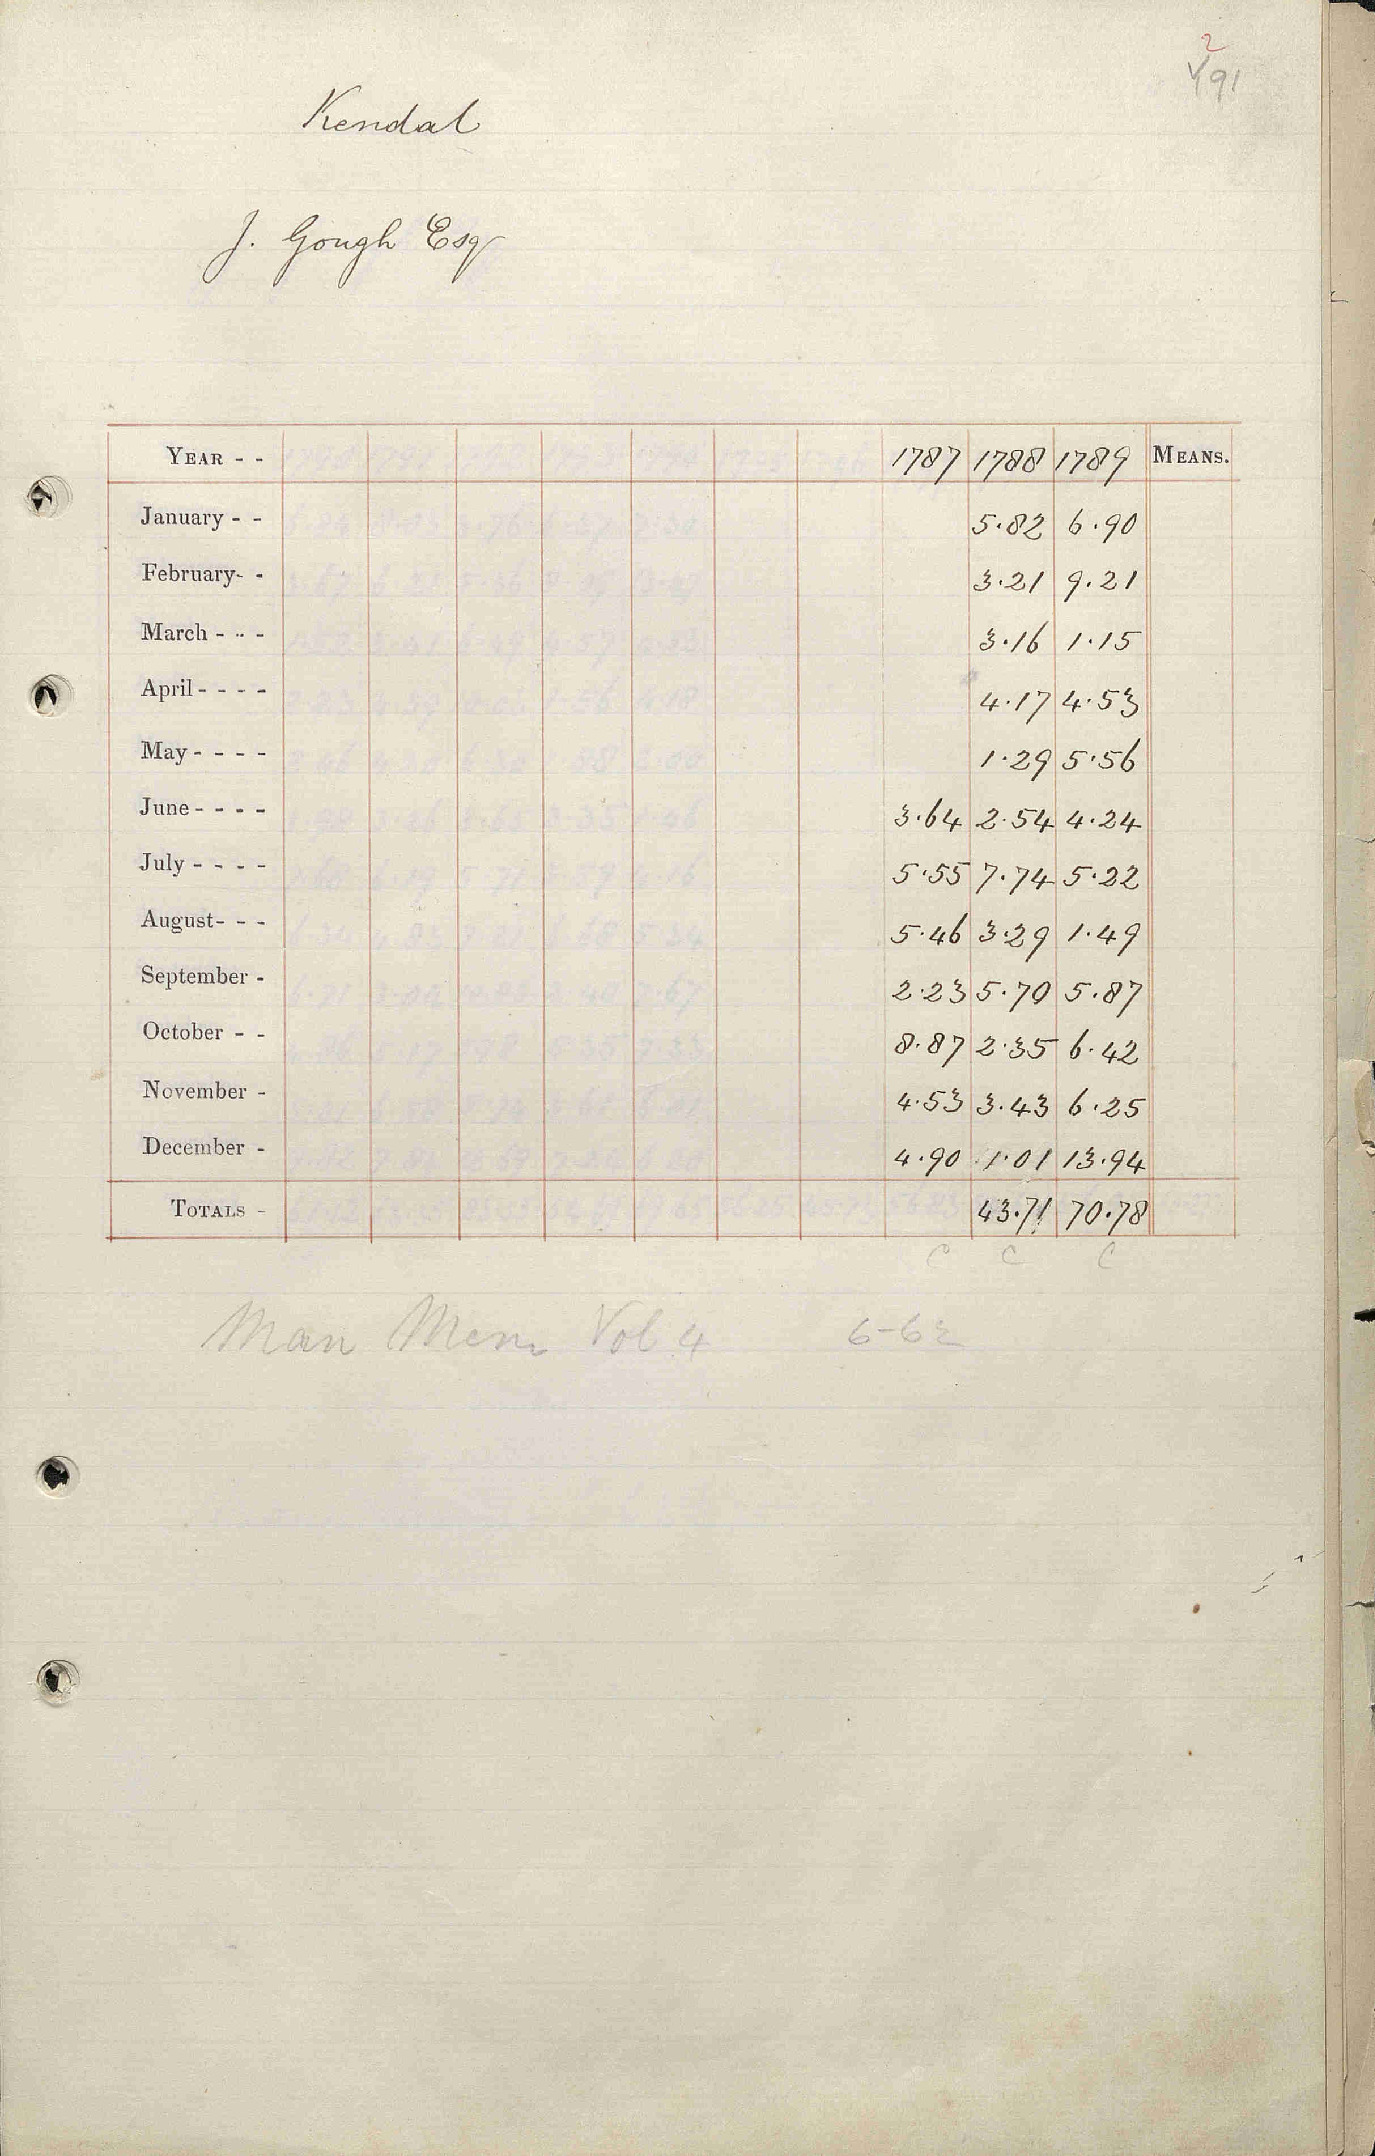 2
191
Kendal
J. Gough Esq
YEAR - - 1787 1788 1789 MEANS.
January - - 5.82 6.90
February- - 3.21 9.21
March - - - 3.16 1.15
April - - - - 4.17 4.53
May - - - - 1.29 5.56
June - - - - 3.64 2.54 4.24
July - - - - 5.55 7.74 5.22
August- - - 5.46 3.29 1.49
September - 2.23 5.70 5.87
October - - 8.87 2.35 6.42
November - 4.53 3.43 6.25
December - 4.90 1.01 13.94
TOTALS - 43.71 70.78
C C C
Man Mem Vol 4 6-62